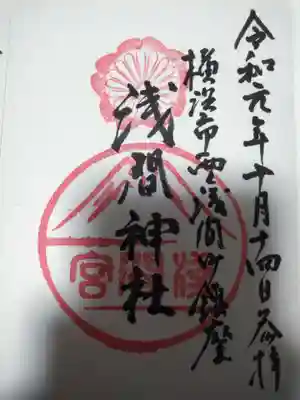 令和元年十月十四日参拝
横浜市西区浅間町鎮座
浅間神社
浅間宮